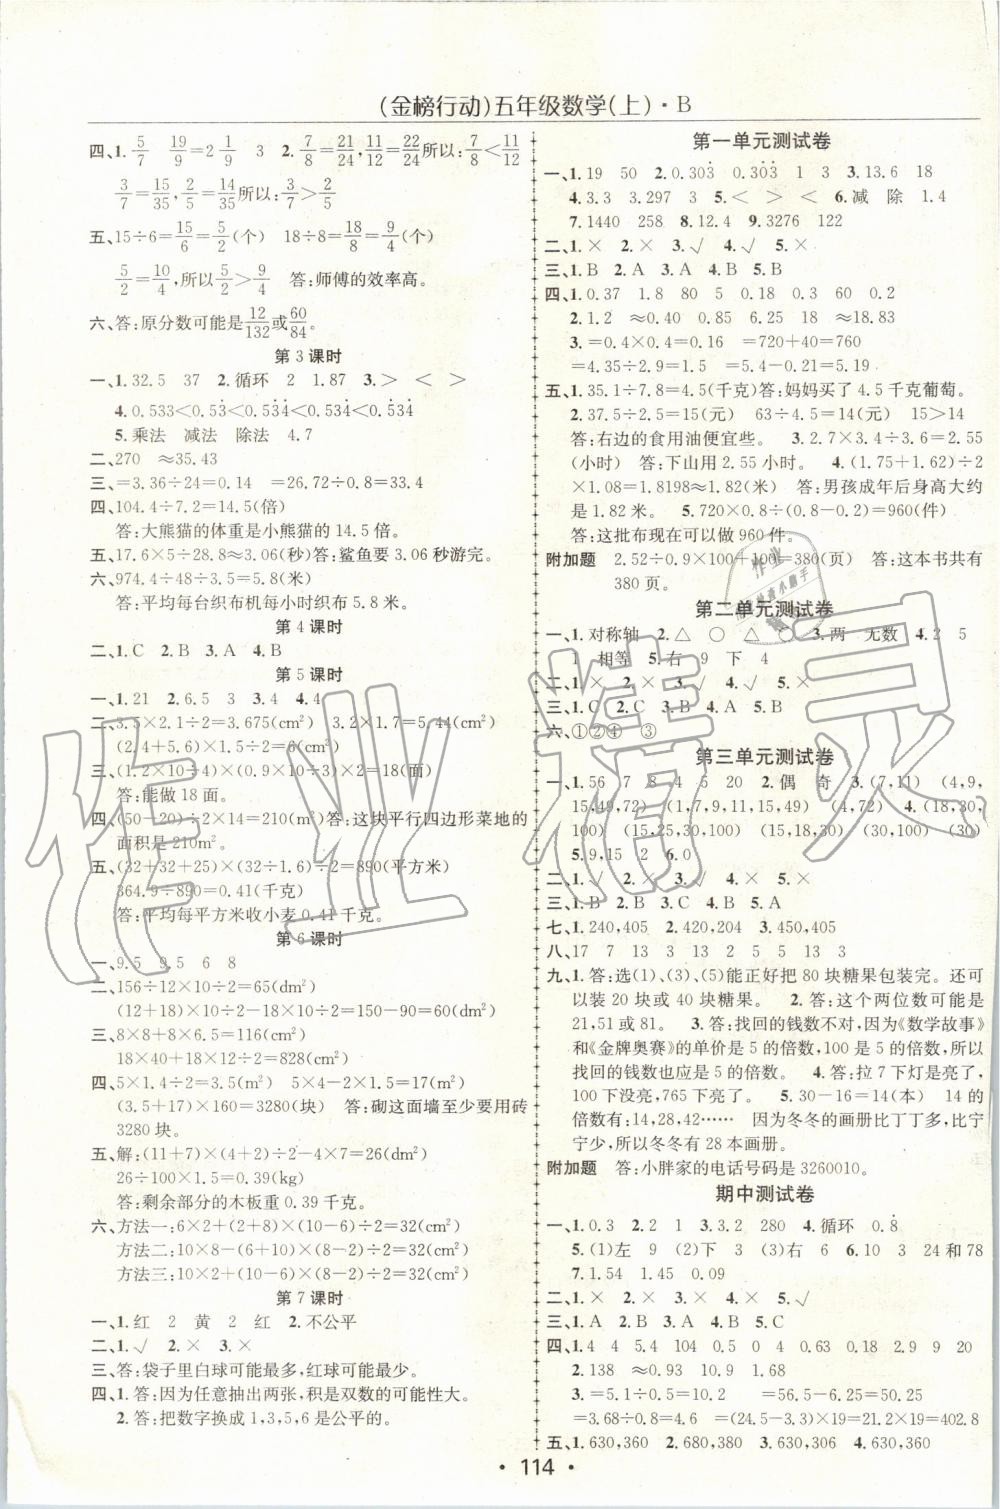 (金榜行动)五年级数学(上)·B
四、1. 5/7 19/9=2 1/9 3 2. 7/8=21/24,11/12=22/24所以:7/8<11/12
3/7=15/35,2/5=14/35所以:3/7>2/5
五、15÷6=15/6=5/2(个) 18÷8=18/8=9/4(个)
5/2=10/4,所以5/2>9/4 答:师傅的效率高。
六、答:原分数可能是12/132或60/84。
第3课时
一、1.32.5 37 2.循环 2 1.87 3.> < >
4.0.533<0.53̇<0.5̇3̇4̇<0.53̇4̇
5.乘法 减法 除法 4.7
二、270 ≈35.43
三、=3.36÷24=0.14 =26.72÷0.8=33.4
四、104.4÷7.2=14.5(倍)
答:大熊猫的体重是小熊猫的14.5倍。
五、17.6×5÷28.8≈3.06(秒)答:鲨鱼要3.06秒游完。
六、974.4÷48÷3.5=5.8(米)
答:平均每台织布机每小时织布5.8米。
第4课时
二、1.C 2.B 3.A 4.B
第5课时
一、1.21 2.6.5 3 3.4 4.4
二、3.5×2.1÷2=3.675(cm²) 3.2×1.7=5.44(cm²)
(2.4+5.6)×1.5÷2=6(cm²)
三、(1.2×10÷4)×(0.9×10÷3)×2
答:能做18面。
四、(50-20)÷2×14=210(m²)答:这块平行四边形菜地的
面积是210m²。
五、(32+32+25)×(32÷1.6)÷2=890(平方米)
364.9÷890=0.41(千克)
答:平均每平方米收小麦0.41千克。
第6课时
一、9.5 9.5 6 8
二、156÷12×10÷2=65(dm²)
(12+18)×10÷2-18×10÷2=60(dm²)
三、8×8+8×6.5=116(cm²)
18×40+18×12÷2=828(cm²)
四、5×1.4÷2=3.5(m²) 5×4-2×1.5=17(m²)
(3.5+17)×160=3280(块) 答:砌这面墙至少要用砖
3280块。
五、解:(11+7)×(4+2)÷2-7×4=26(cm²)
26÷100×1.5=0.39(kg)
答:剩余部分的木板重0.39千克。
六、方法一:6×2+(2+8)×(10-6)÷2=32(cm²)
方法二:10×8-(6+10)×(8-2)÷2=32(cm²)
方法三:10×2+(10-6)×(8-2)÷2=32(cm²)
第7课时
一、1.红 2 黄 2 红 2.不公平
二、1.√ 2.× 3.×
三、答:袋子里白球可能最多,红球可能最少。
四、1.答:因为任意抽出两张,积是双数的可能性大。
2.答:把数字换成1,3,5,6是公平的。
第一单元测试卷
一、1.19 50 2.0.303̇ 0.3̇03̇ 1 3 3.13.6 18
4.3.3 3.297 3 5.< > < 6.减 除 1.4
7.1440 258 8.12.4 9.3276 122
二、1.× 2.× 3.√ 4.√ 5.×
三、1.B 2.A 3.A 4.B 5.B
四、1.0.37 1.8 80 5 0.18 0.3 60 0.2
2.1.2 ≈0.40 0.85 6.25 18 ≈18.83
3.=0.4×0.4=0.16 =720+40=760
=4.35÷2.5÷2=0.87 =0.84+4.35=5.19
五、1.35.1÷7.8=4.5(千克)答:妈妈买了4.5千克葡萄。
2.37.5÷2.5=15(元) 63÷4.5=14(元) 15>14
答:右边的食用油便宜些。 3.2.7×3.4÷3.6=2.55
(小时) 答:下山用2.55小时。 4.(1.75+1.62)÷2
×1.08=1.8198≈1.82(米) 答:男孩成年后身高大约
是1.82米。 5.720×0.8÷(0.8-0.2)=960(件)
答:这批布现在可以做960件。
附加题 2.52÷0.9×100+100=380(页) 答:这本书共有
380页。
第二单元测试卷
一、1.对称轴 2.△ ○ △ ○ 3.两 无数 4.2 5
1 相等 5.右 9 下 4
二、1.× 2.× 3.√ 4.√ 5.×
三、1.C 2.C 3.B 4.A 5.B
六、①②④ ③
第三单元测试卷
一、1.56 7 8 4 5 20 2.偶 奇 3.(7,11) (4,9,
15,49,72) (1,7,9,11,15,49) (4,72) 4.(18,30,
100) (15,25,30,100) (15,18,30) (30,100) (30)
5.9,15 2 6.0
二、1.√ 2.× 3.× 4.√ 5.×
三、1.B 2.C 3.A 4.B 5.A
七、1.240,405 2.420,204 3.405
八、17 7 13 3 13 2 5 5 13 3
九、1.答:选(1)、(3)、(5)能正好把80块糖果包装完。还可
以装20块或40块糖果。 2.答:这个两位数可能是
21,51或81。 3.答:找回的钱数不对,因为《数学故事》
和《金牌奥赛》的单价是5的倍数,100是5的倍数,所以
找回的钱数是5的倍数。 4.答:拉7下灯是亮了,
100下没亮,765下亮了。 5.30-16=14(本) 14的
倍数有:14,28,42…… 因为冬冬的画册比丁丁多,比宁
宁少,所以冬冬有28本画册。
附加题 答:小胖家的电话号码是3260010。
期中测试卷
一、1.0.3 2.2 1 3.3.2 280 4.循环 0.8̇
5.(1)左 9 (2)下 3 (3)右 6 6.10 3 24和78
7.1.54 1.45 0.09
二、1.× 2.× 3.× 4.× 5.√
三、1.A 2.B 3.A 4.B 5.C
四、1.4 4 5.4 104 0.5 0 4 0.63 0.18 0.29 20
2.138 ≈0.93 10.9 1.68
3.=5.1÷0.5=10.2 =56.5-6.25=50.25
=3.68÷0.8=4.6 =(24.5-3.3)×19=21.2×19=402.8
五、1.630,360 2.680,860 3.630,360 4.630,360
·114·